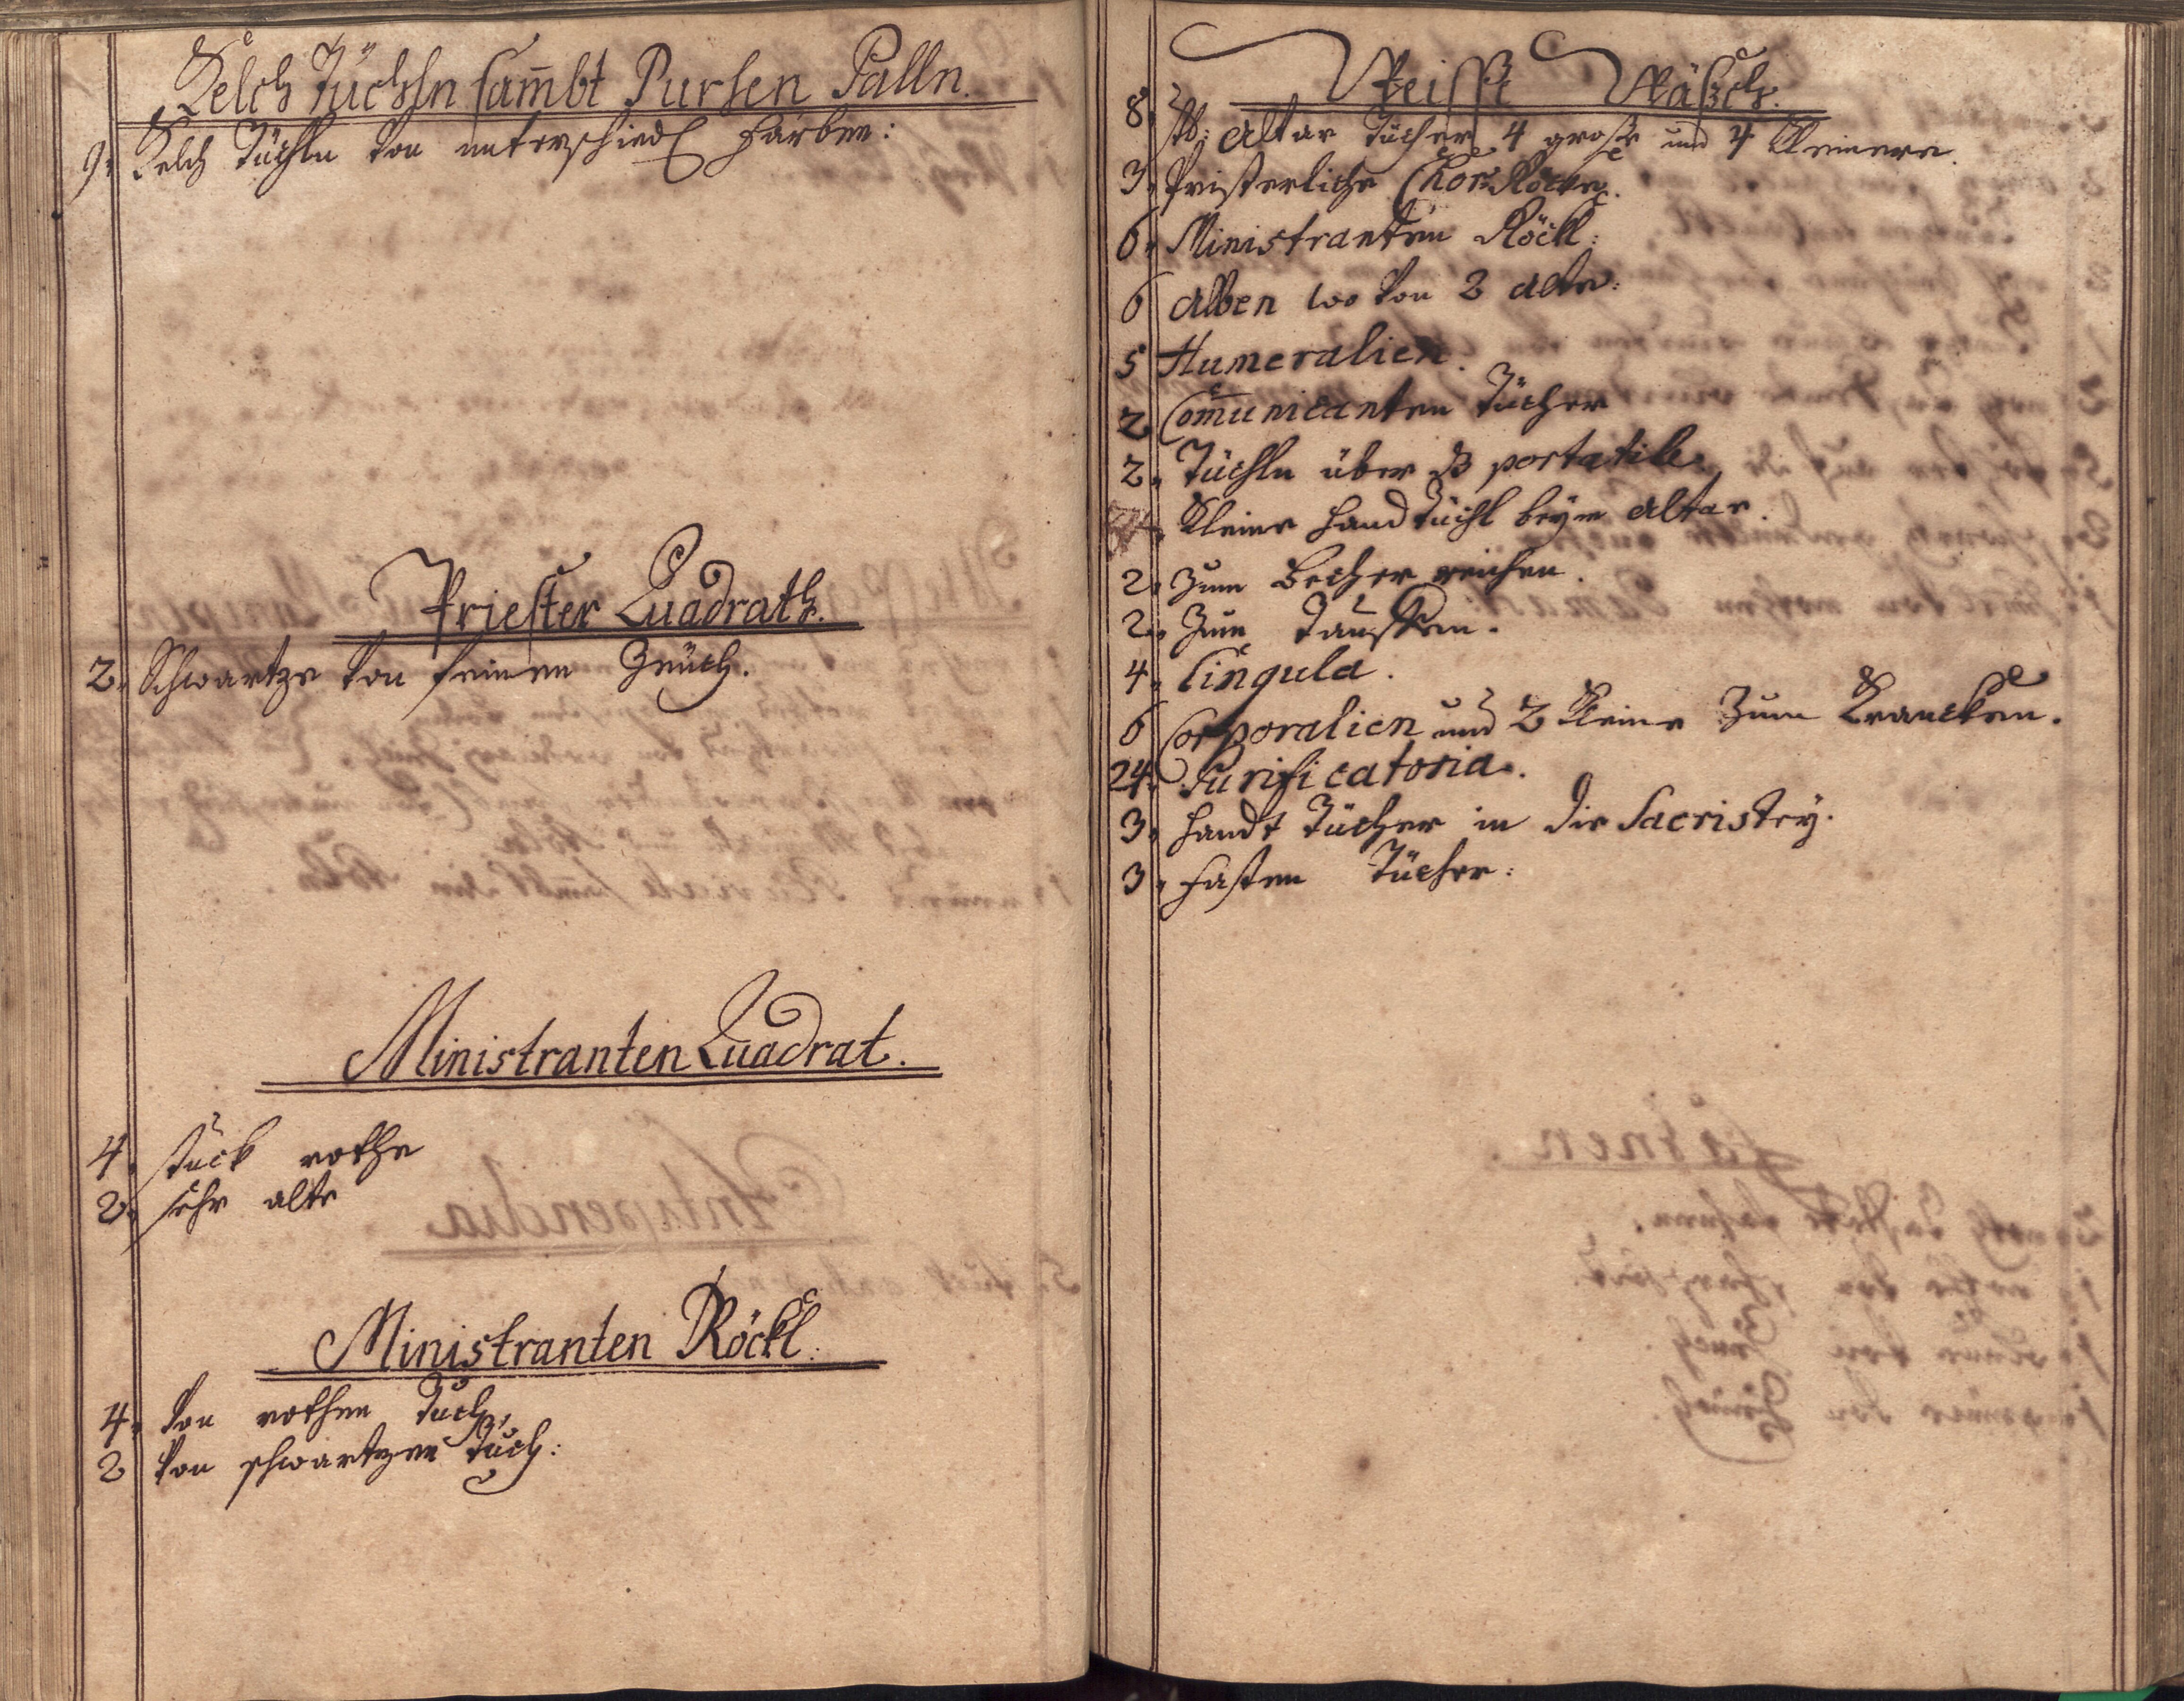 Kelch Tüchln sam̄bt Pursen Palln.
9. Kelch Tüchln von unterschiedl Farben:
Priester Quadrath.
2. Schwartze von feinen Zeüch.
Ministranten Quadrat.
4. stuck rothe
2. sehr alte
Ministranten Röckl.
4. von rothen Tuch,
2 von schwartzen Tuch:
Weisse Wäsch.
8. st: Altar Tücher 4 große und 4 kleinere.
3. Pristerliche Chor Röcke.
6. Ministranten Röckl:
6 Alben wo von 2 alte:
5 Humeralien.
2 Com̄unicanten Tücher
2. Tüchln über dß portatile.
Kleine Handtüchl beÿm Altar.
2. Zum Becher reichen.
2. Zum Tauffen.
4. Cingula.
6 Corporalien und 2 kleine Zum Krancken.
24. Purificatoria.
3. Handt Tücher in die Sacristeÿ.
3. Fasten Tücher: